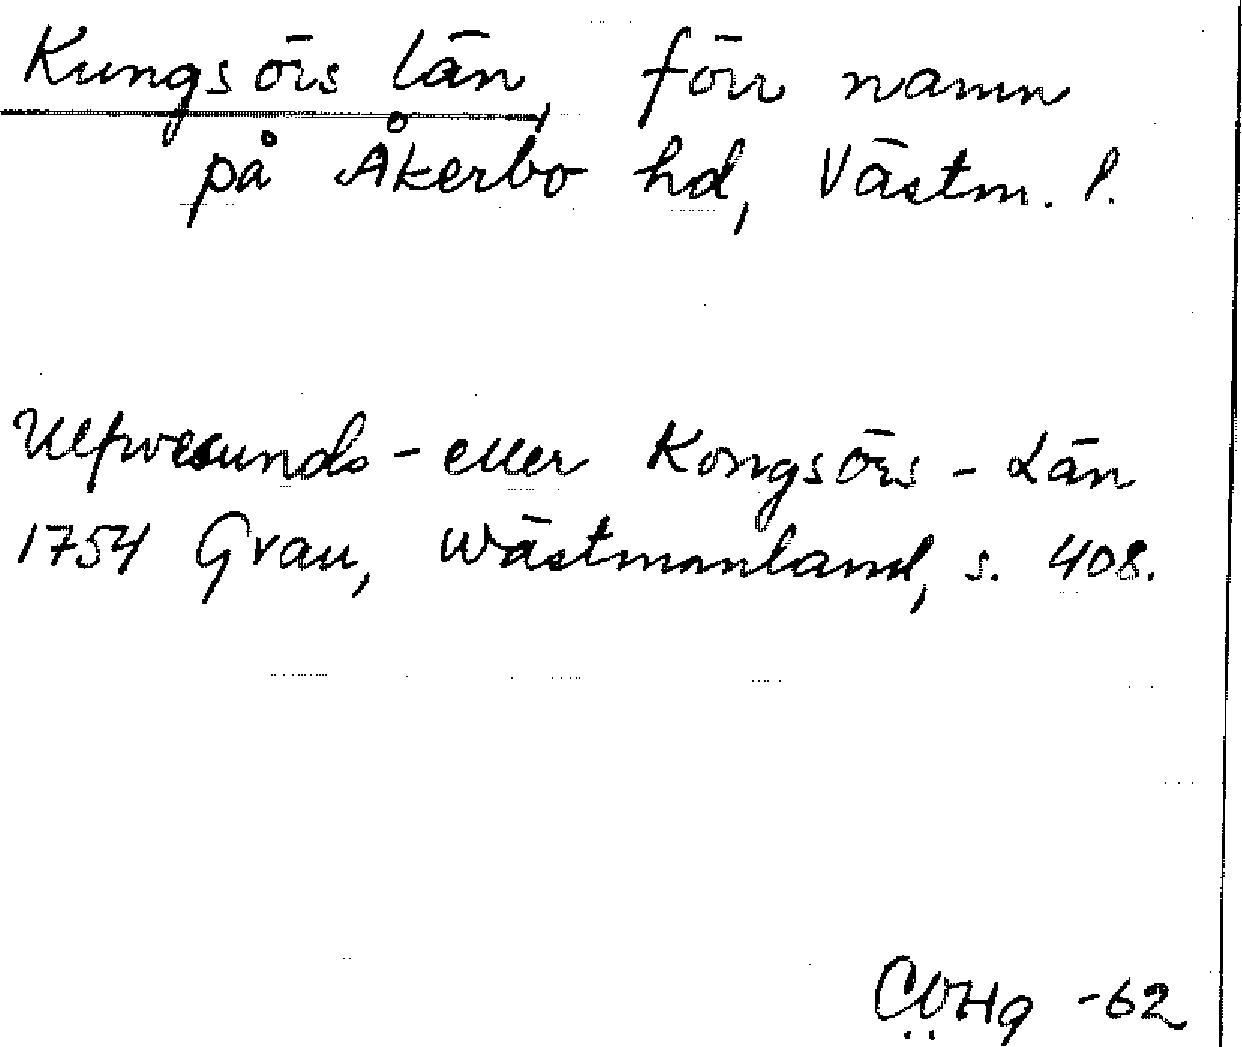 Kungsörs län, förr namn
på Åkerbo hd, Västm. l.
Ulfwesunds- eller Kongsörs-Län
1754 Grau, Wästmanland, s. 408.
-62